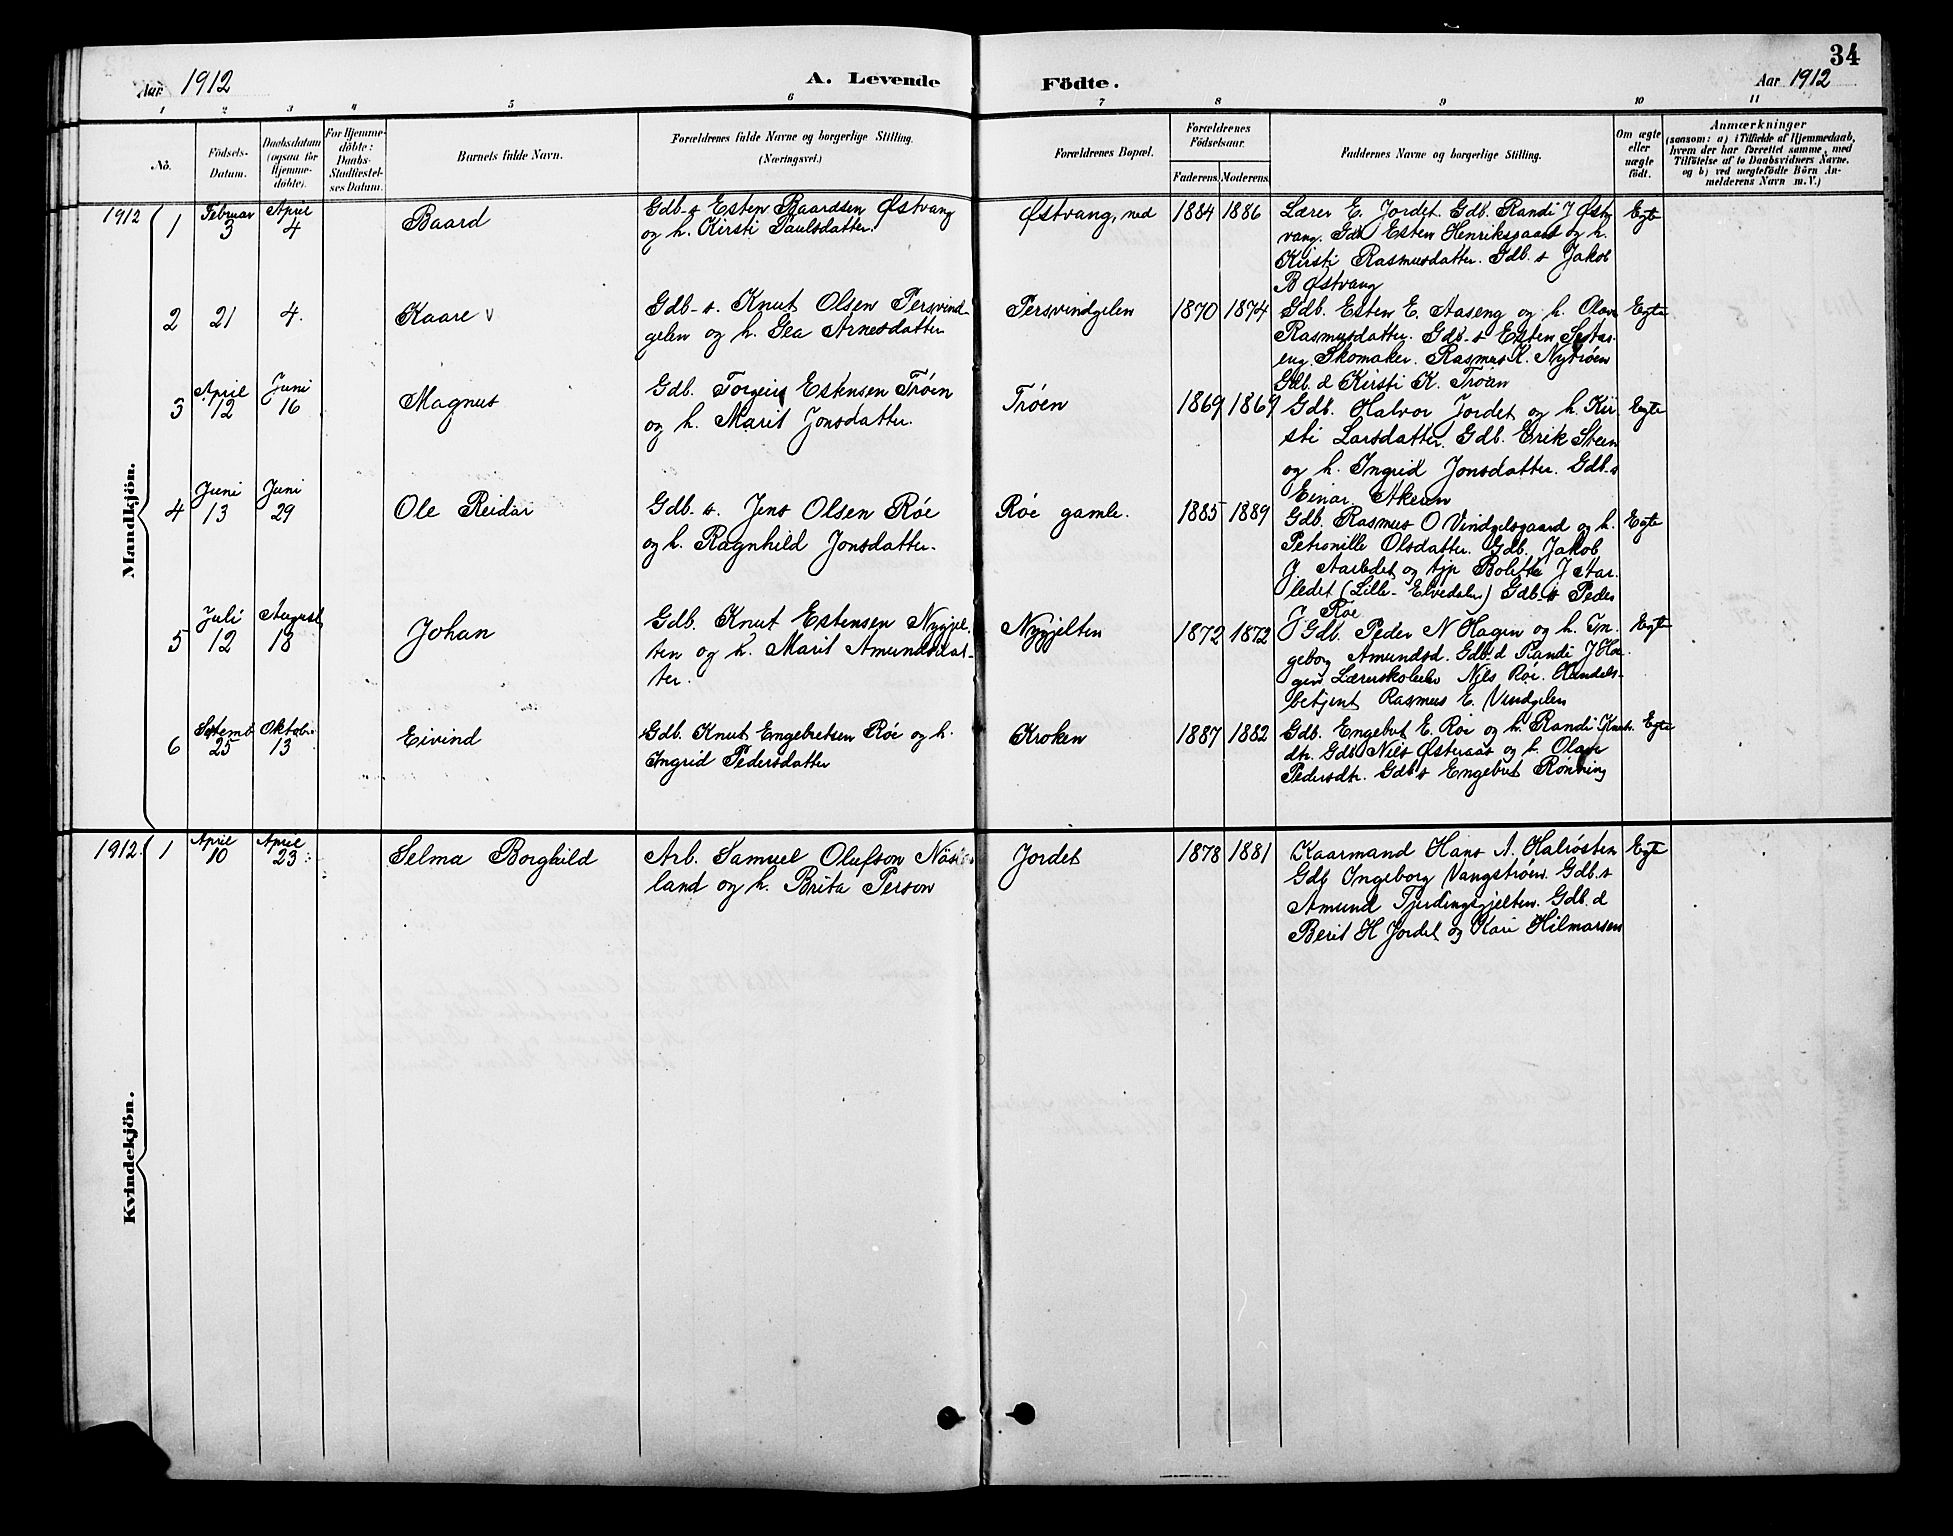 34
Aar 1912
A. Levende Födte.
Aar 1912
1 2 3 4 5 6 7 8 9 10 11
No.
Födsels-
Datum.
Daabsdatum
(ogsaa for
Hjemme-
döbte).
For Hjemme-
döbte:
Daabs-
Stadfæstel-
ses Datum.
Barnets fulde Navn.
Forældrenes fulde Navne og borgerlige Stilling.
(Næringsvei.)
Forældrenes Bopæl.
Forældrenes
Födselsaar.
Faderens. Moderens.
Faddernes Navne og borgerlige Stilling.
Om ægte
eller
uægte
födt.
Anmærkninger
(saasom: a) i Tilfælde af Hjemmedaab,
hvem der har forrettet samme, med
Tilföielse af to Daabsvidners Navne.
og b) ved uægtefödte Börn An-
melderens Navn m. V.)
Mandkjön.
1912 1
Februar
3
April
4
Baard
Gdb-s Esten Baardsen Østvang
og h. Kirsti Paulsdatter.
Østvang, ned
1884 1886
Lærer E. Jordet. Gdb. Randi J Øst
vang. Gdb Esten Henriksgaard og h.
Kirsti Rasmusdatter. Gdb. s Jakob
B Østvang
Egte
2 21 4.
Kaare
Gdb-s. Knut Olsen Persvind-
gelen og h. Gea Arnesdatter
Persvindgelen
1870 1874
Gdb. Esten E. Aaseng og h. Olava
Rasmusdatter. Gdb-s Esten
eng. Skomaker. Rasmus K. Nytrøen
Gdb. d Kirsti K. Trøen
Egte
3
April
12
Juni
16
Magnus
Gdb. Torgeir Estensen Trøen
og h. Marit Jonsdatter.
Trøen
1869 1869
Gdb. Halvor Jordet og h. Kir
sti Larsdatter. Gdb. Erik Steen
og h. Ingrid Jonsdatter. Gdb. s
Einar Akeren
Egte
4
Juni
13
Juni
29
Ole Reidar
Gdb. s. Jens Olsen Røe
og h. Ragnhild Jonsdatter.
Røe gamle.
1885 1889
Gdb. Rasmus O Vindgelsgaard og h.
Petronille Olsdatter. Gdb. Jakob
J Aarledet og tjp Bolette J Aar.
ledet (Lille-Elvedalen) Gdb. s Peder
J Røe
Egte
5
Juli
12
August
18
Johan
Gdb. Knut Estensen Nygjel.
ten og h. Marit Amundsdat-
ter.
Nygjelten
1872 1872
Gdb. Peder N Hagen og h. In.
geborg Amundsd. Gdb. d Randi J Ha.
gen Lærerskoleelev Nils Røe. Handels-
betjent Rasmus E. Vindgelen
Egte
6
Septemb
25
Oktober
13
Eivind
Gdb. Knut Engebretsen Røe og h.
Ingrid Pedersdatter
Kroken
1887 1882
Gdb. Engebret E. Røe og h. Randi Knuts.
dtr. Gdb Nils Østeraas og h. Olava
Pedersdtr. Gdb. s Engebret Rønning
Egte
Kvindekjön.
1912. 1
April
10
April
23
Selma Borghild
Arb. Samuel Olufson
land og h. Brita Person
Jordet
1878 1881
Kaarmand Hans A. Halrøsten
Gdb Ingeborg Vangstrøen. Gdb. s
Amund Tjerdingsgjelten. Gdb. d
Berit H Jordet og Kari Hilmarsen
Egte